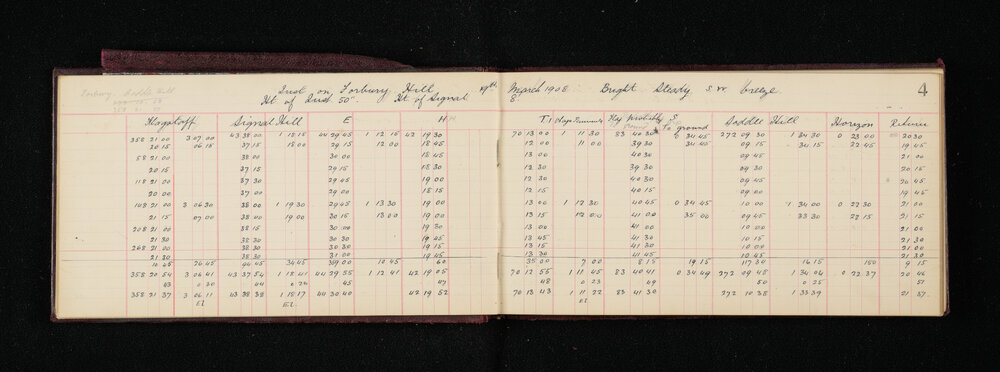 Inst on Forbury Hill 19th March 1908 Bright Steady S W breeze 4
Ht of Inst 5.0 Ht of Signal 8.
Flagstaff Signal Hill E H T1 Saddle Hill Horizon Return
to ground
358 21 00 3 07 00 43 38 00 1 18 15 44 29 45 1 12 15 42 19 30 70 13 00 1 11 30 83 40 30 0 34 45 272 09 30 1 34 30 0 23 00 20 30
20 15 06 15 37 15 18 00 29 15 12 00 18 45 12 00 11 00 39 30 34 45 09 15 34 15 22 45 19 45
58 21 00 38 00 30 00 18 45 13 00 40 30 09 45 21 00
20 15 37 15 29 15 18 30 12 30 39 30 09 30 20 15
118 21 00 37 30 29 45 19 00 12 30 40 30 09 30 20 45
20 00 37 00 29 00 18 15 12 15 40 15 09 00 19 45
208 21 00 3 06 30 38 00 1 19 30 29 45 1 13 30 19 00 13 00 1 12 30 40 45 0 34 45 10 00 1 34 00 0 22 30 21 00
21 15 07 00 38 00 19 00 30 15 13 00 19 00 13 15 12 00 41 00 35 00 09 45 33 30 22 15 21 15
268 21 00 38 15 30 00 19 00 13 00 41 00 10 00 21 00
21 30 38 30 30 30 19 45 13 45 41 30 10 15 21 30
268 21 00 38 30 30 30 19 15 13 15 41 30 10 00 21 00
21 30 38 30 31 00 19 45 13 30 41 45 10 45 21 30
10 45 26 45 34 45 60 35 00 7 00 8 15 19 15 117 30 16 15 9 15
358 20 54 3 06 41 43 37 54 1 18 41 44 29 55 1 12 41 42 19 05 70 12 55 1 11 45 83 40 41 0 34 49 272 09 48 1 34 04 0 22 37 20 46
43 0 30 44 0 24 45 47 48 0 23 49 50 0 25 51
358 21 37 3 06 11 43 38 38 1 18 17 44 30 40 42 19 52 70 13 43 1 11 22 83 41 30 272 10 38 1 33 39 21 37
El El El